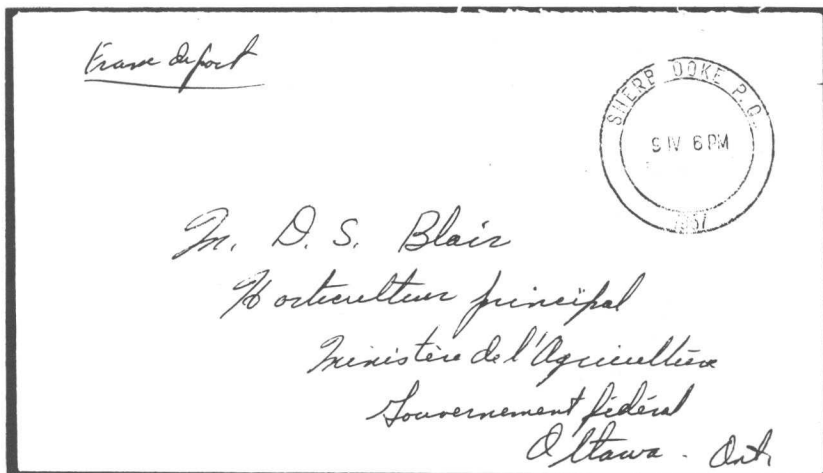 Franc de port
SHERBROOKE P.Q.
9 IV 6 PM
1957
M. D. S. Blair
Horticulteur principal
Ministère de l'Agriculture
Gouvernement fédéral
Ottawa - Ont.